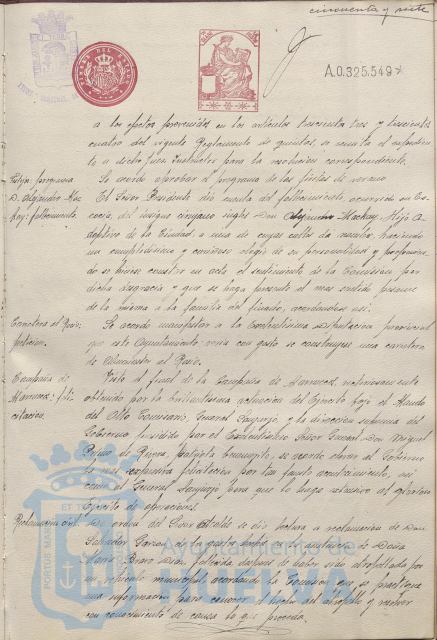 cincuenta y siete
A.0.325.549
a los efectos prevenidos en los artículos trescientos tres y trescientos
cuatro del vigente Reglamento de quintas, se remita el expediente
a dicho Juez Instructor para la resolución correspondiente.
Se acordó aprobar el programa de las fiestas de verano
D. Alejandro Mac
kay: fallecimiento.
El Señor Presidente dió cuenta del fallecimiento, ocurrido en Es
cocia, del insigne cirujano inglés Don Alejandro Mackay, Hijo A
doptivo de la Ciudad a una de cuyas calles da nombre, haciendo
un cumplidísimo y cariñoso elogio de su personalidad y
se hiciese constar en acta el sentimiento de la Comisión por
dicha desgracia y que se haga presente el mas sentido pesame
de la misma a la familia del finado, acordándose así.
Carretera al
petición.
Se acordó manifestar a la Excelentísima Diputación provincial
que este Ayuntamiento vería con gusto se construyese una carretera
de Almonaster al
Campaña de
Marruecos: feli
citación.
Visto el final de la Campaña de Marruecos,
obtenido por la brillantísima actuación del Ejército bajo el Mando
del Alto Comisario, General Sanjurjo, y la dirección suprema del
Gobierno presidido por el Excelentísimo Señor General Don Miguel
Primo de Rivera, patriota benemérito, se acordó elevar al Gobierno
la mas felicitación por tan fausto acontecimiento, así
como al General Sanjurjo para que lo haga extensivo al
Ejército de operaciones.
Reclamación civil.
De orden del Señor Alcalde se dió lectura a reclamación de Don
Salvador García de la
María Bravo Díaz, fallecida después de haber sido atropellada por
un vehículo municipal, acordando la Comisión que se practique
una información para conocer el origen del atropello y resolver
con conocimiento de causa lo que proceda.
Ayuntamiento de
HUELVA
PORTUS MARIS
ET TERRAE